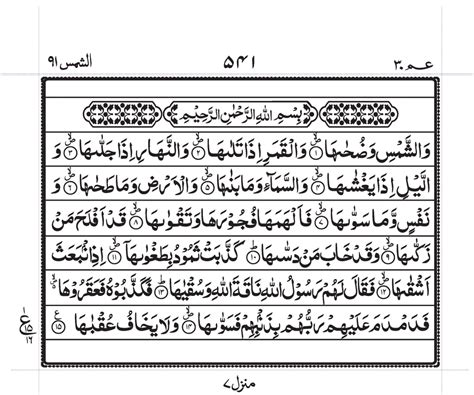 عـم ٣٠ ۵۴۱ الشمس ٩١
بِسْمِ اللهِ الرَّحْمٰنِ الرَّحِيْمِ
وَالشَّمْسِ وَضُحٰىهَا ۙ﴿۱﴾ وَالْقَمَرِ اِذَا تَلٰىهَا ۙ﴿۲﴾ وَالنَّهَارِ اِذَا جَلّٰىهَا ۙ﴿۳﴾ وَ
الَّيْلِ اِذَا يَغْشٰىهَا ۙ﴿۴﴾ وَالسَّمَآءِ وَمَا بَنٰىهَا ۙ﴿۵﴾ وَالْاَرْضِ وَمَا طَحٰىهَا ۙ﴿۶﴾ وَ
نَفْسٍ وَّمَا سَوّٰىهَا ۙ﴿۷﴾ فَاَلْهَمَهَا فُجُوْرَهَا وَتَقْوٰىهَا ۙ﴿۸﴾ قَدْ اَفْلَحَ مَنْ
زَكّٰىهَا ۙ﴿۹﴾ وَقَدْ خَابَ مَنْ دَسّٰىهَا ؕ﴿۱۰﴾ كَذَّبَتْ ثَمُوْدُ بِطَغْوٰىهَاۤ ۙ﴿۱۱﴾ اِذِ انْۢبَعَثَ
اَشْقٰىهَا ۙ﴿۱۲﴾ فَقَالَ لَهُمْ رَسُوْلُ اللهِ نَاقَةَ اللهِ وَسُقْيٰهَا ؕ﴿۱۳﴾ فَكَذَّبُوْهُ فَعَقَرُوْهَا
فَدَمْدَمَ عَلَيْهِمْ رَبُّهُمْ بِذَنْۢبِهِمْ فَسَوّٰىهَا ۙ﴿۱۴﴾ وَلَا يَخَافُ عُقْبٰهَا ﴿۱۵﴾
منزل ۷